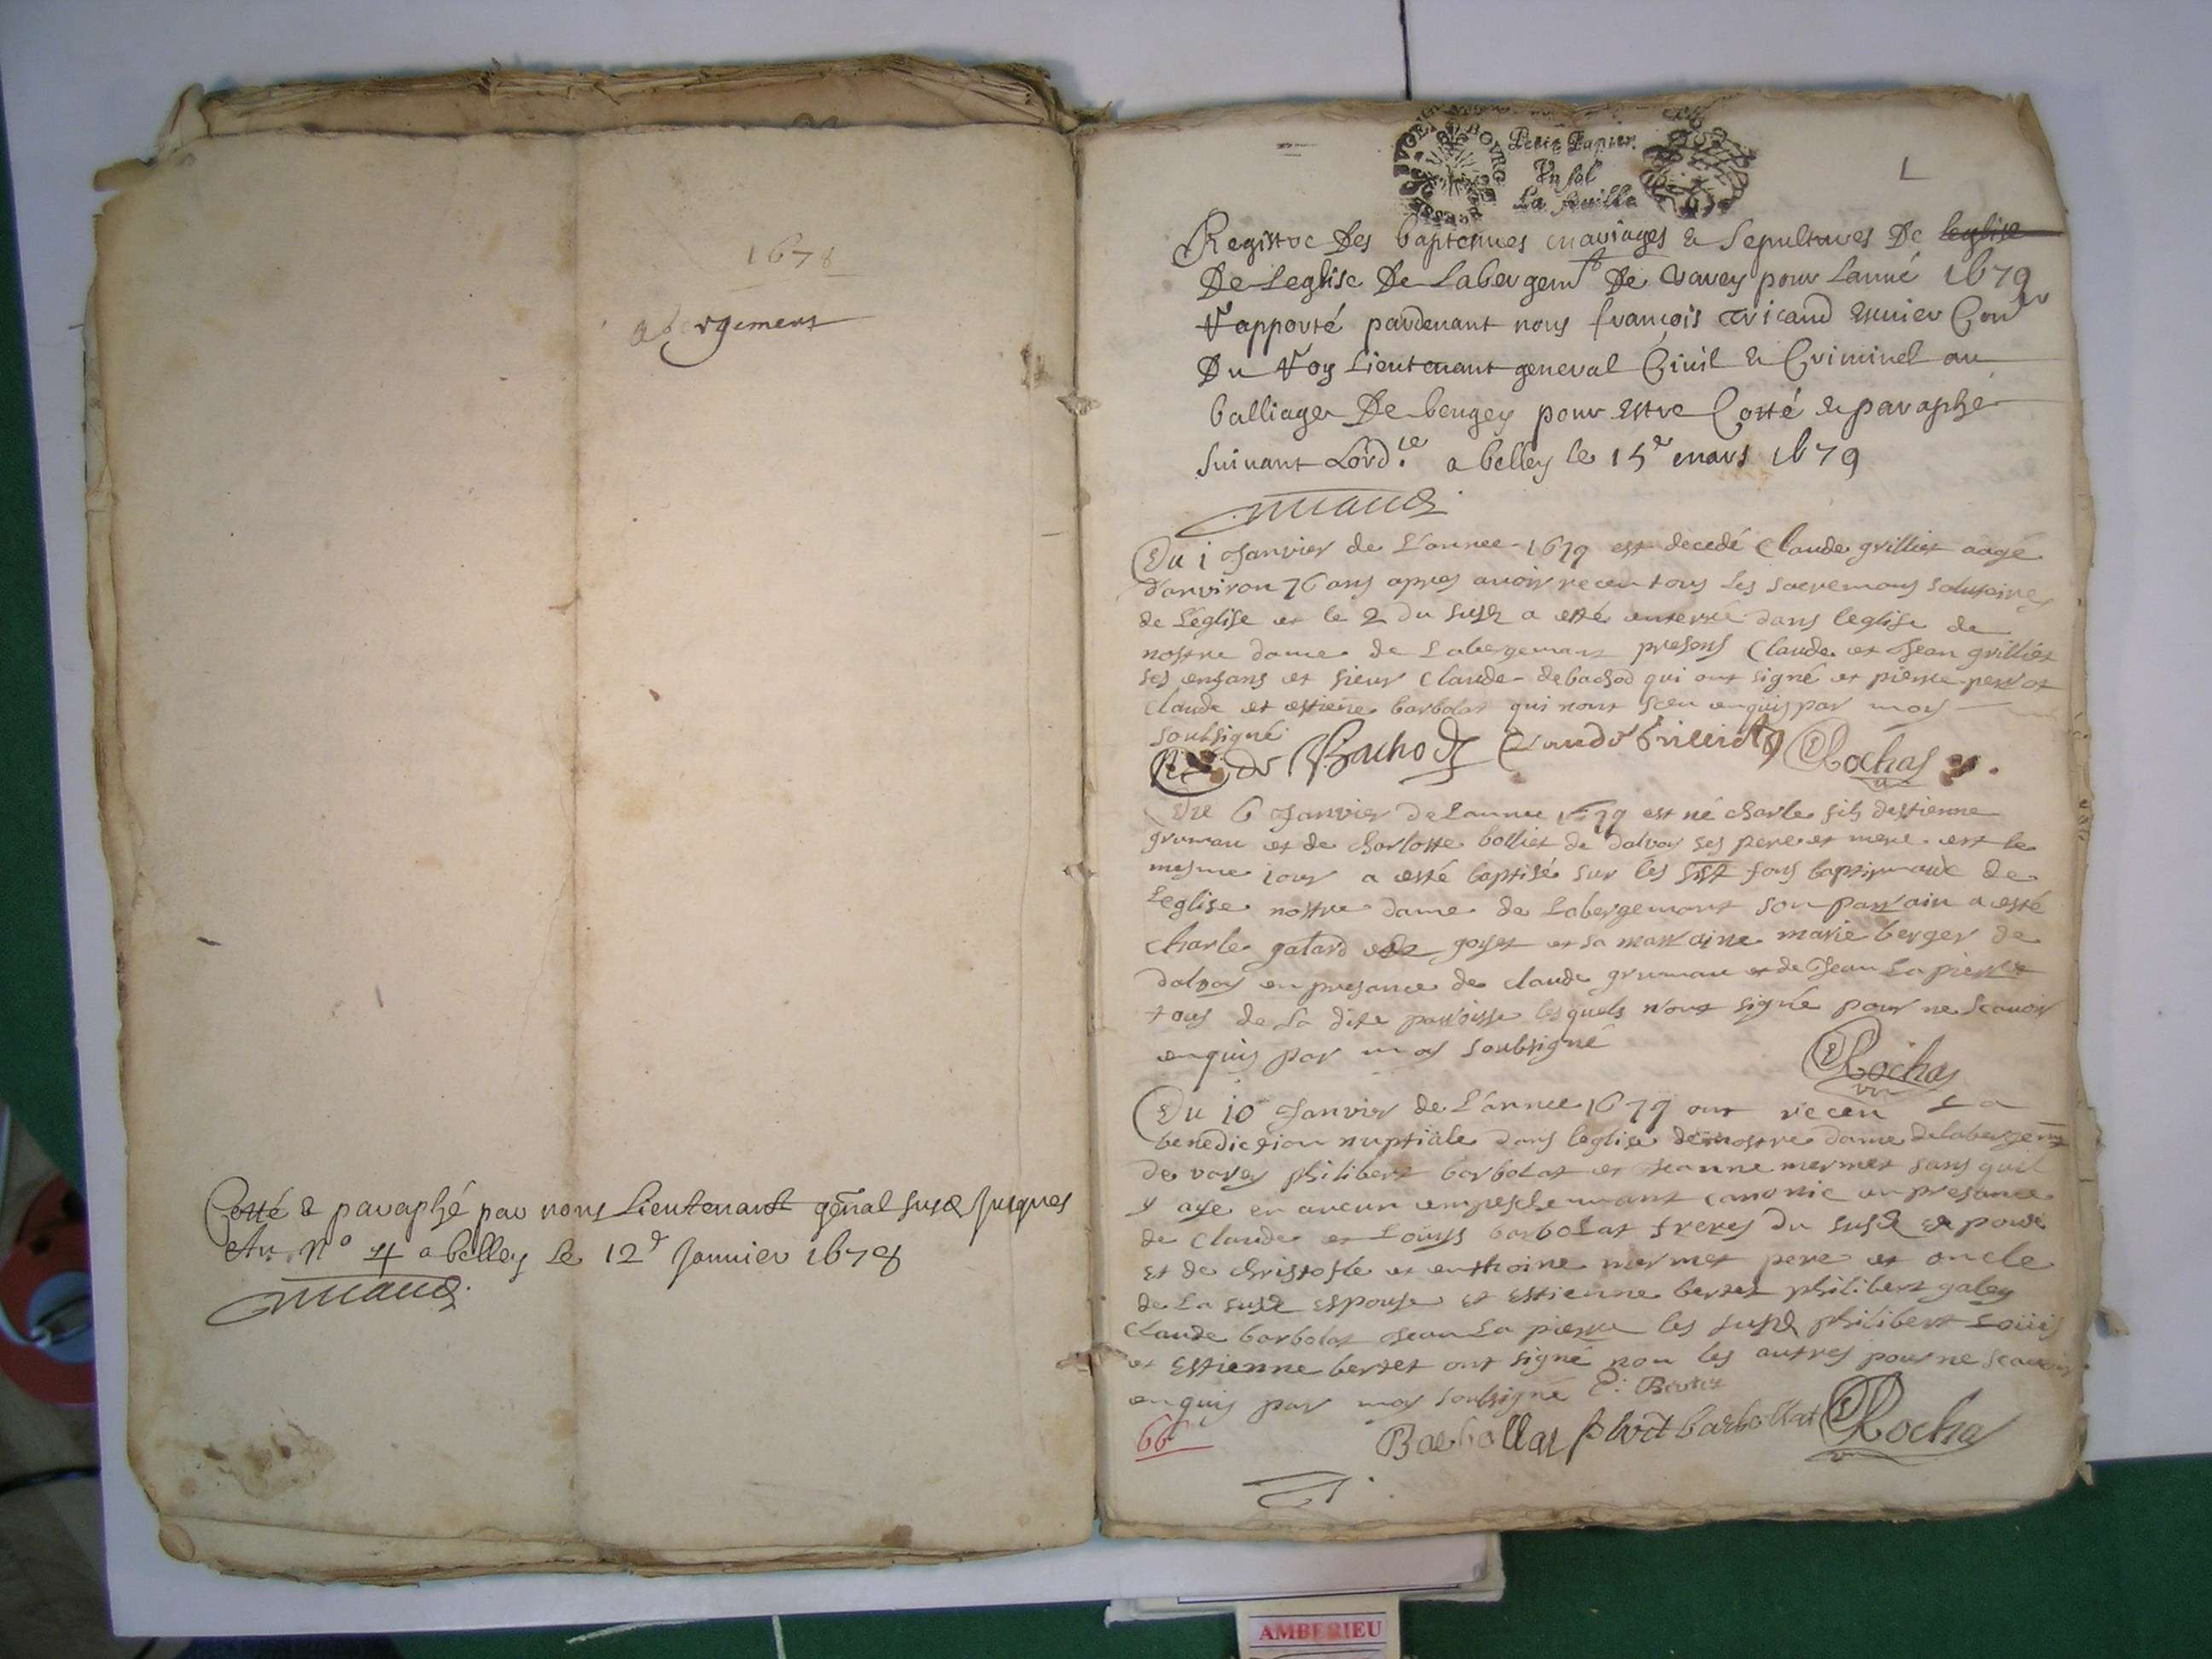 1678
abergement
Cotté & paraphé par nous Lieutenant gñal susd Jusques
Au N° 4 a belley le 12e Januier 1678
Petit Papier
Vn sol
La feuille
Registre Des baptesmes mariages & Sepultures De leglise
De Leglise De Labergemt De Varey pour Lanné 1679
Rapporté pardeuant nous françois Tricaud Escuier Coner
Du Roy Lieutenant general Ciuil & Criminel au
balliage De beugey pour Estre Cotté & paraphe
suiuant Lordce a belley le 15e mars 1679
Du 1 Janvier de L'annee 1679 est decedé Claude grilliet aagé
d'anviron 76 ans apres auoir receu tous les sacremans salutaires
de L'église et le 2 du susd a esté enterré dans leglise de
nostre dame de Labergemant presens Claude et Jean grilliet
ses enfans et sieur Claude debachod qui ont signé et pierre perrot
Claude et estiene barbolat qui nont sceu enquis par moy
soubsigné
de Bachod Claude Grilliet Rochas
Du 6 Janvier de Lannee 1679 est né charle fils destienne
gruman et de charlotte bolliet de dalvoy ses pere et mere et le
mesme iour a esté baptisé sur les fons baptismaux de
Leglise nostre dame de Labergemant son parrain a esté
charle galard goyset et sa marraine marie berger de
dalvoy en presance de claude gruman et de Jean Lapierre
tous de La dite parroisse lesquels n'ont signé pour ne scauoir
enquis par moy soubsigné
Rochas
Du 10 Janvier de L'annee 1679 ont receu La
benediction nuptiale dans leglise de nostre dame delabergemt
de varey philibert barbolat et Jeanne mermet sans quil
y aye eu aucun empeschemant canonic en presance
de Claude et Louys barbolat freres du susd epoux
et de christofle et enthoine mermet pere et oncle
de La susd espouse et Estienne bertet philibert galey
Claude barbolat Jean La pierre les susd philibert Louis
et Estienne bertet ont signé non les autres pour ne scauoir
enquis par moy soubsigné E: Bertet
66
Barbollat phbt barbollat Rochas
AMBERIEU